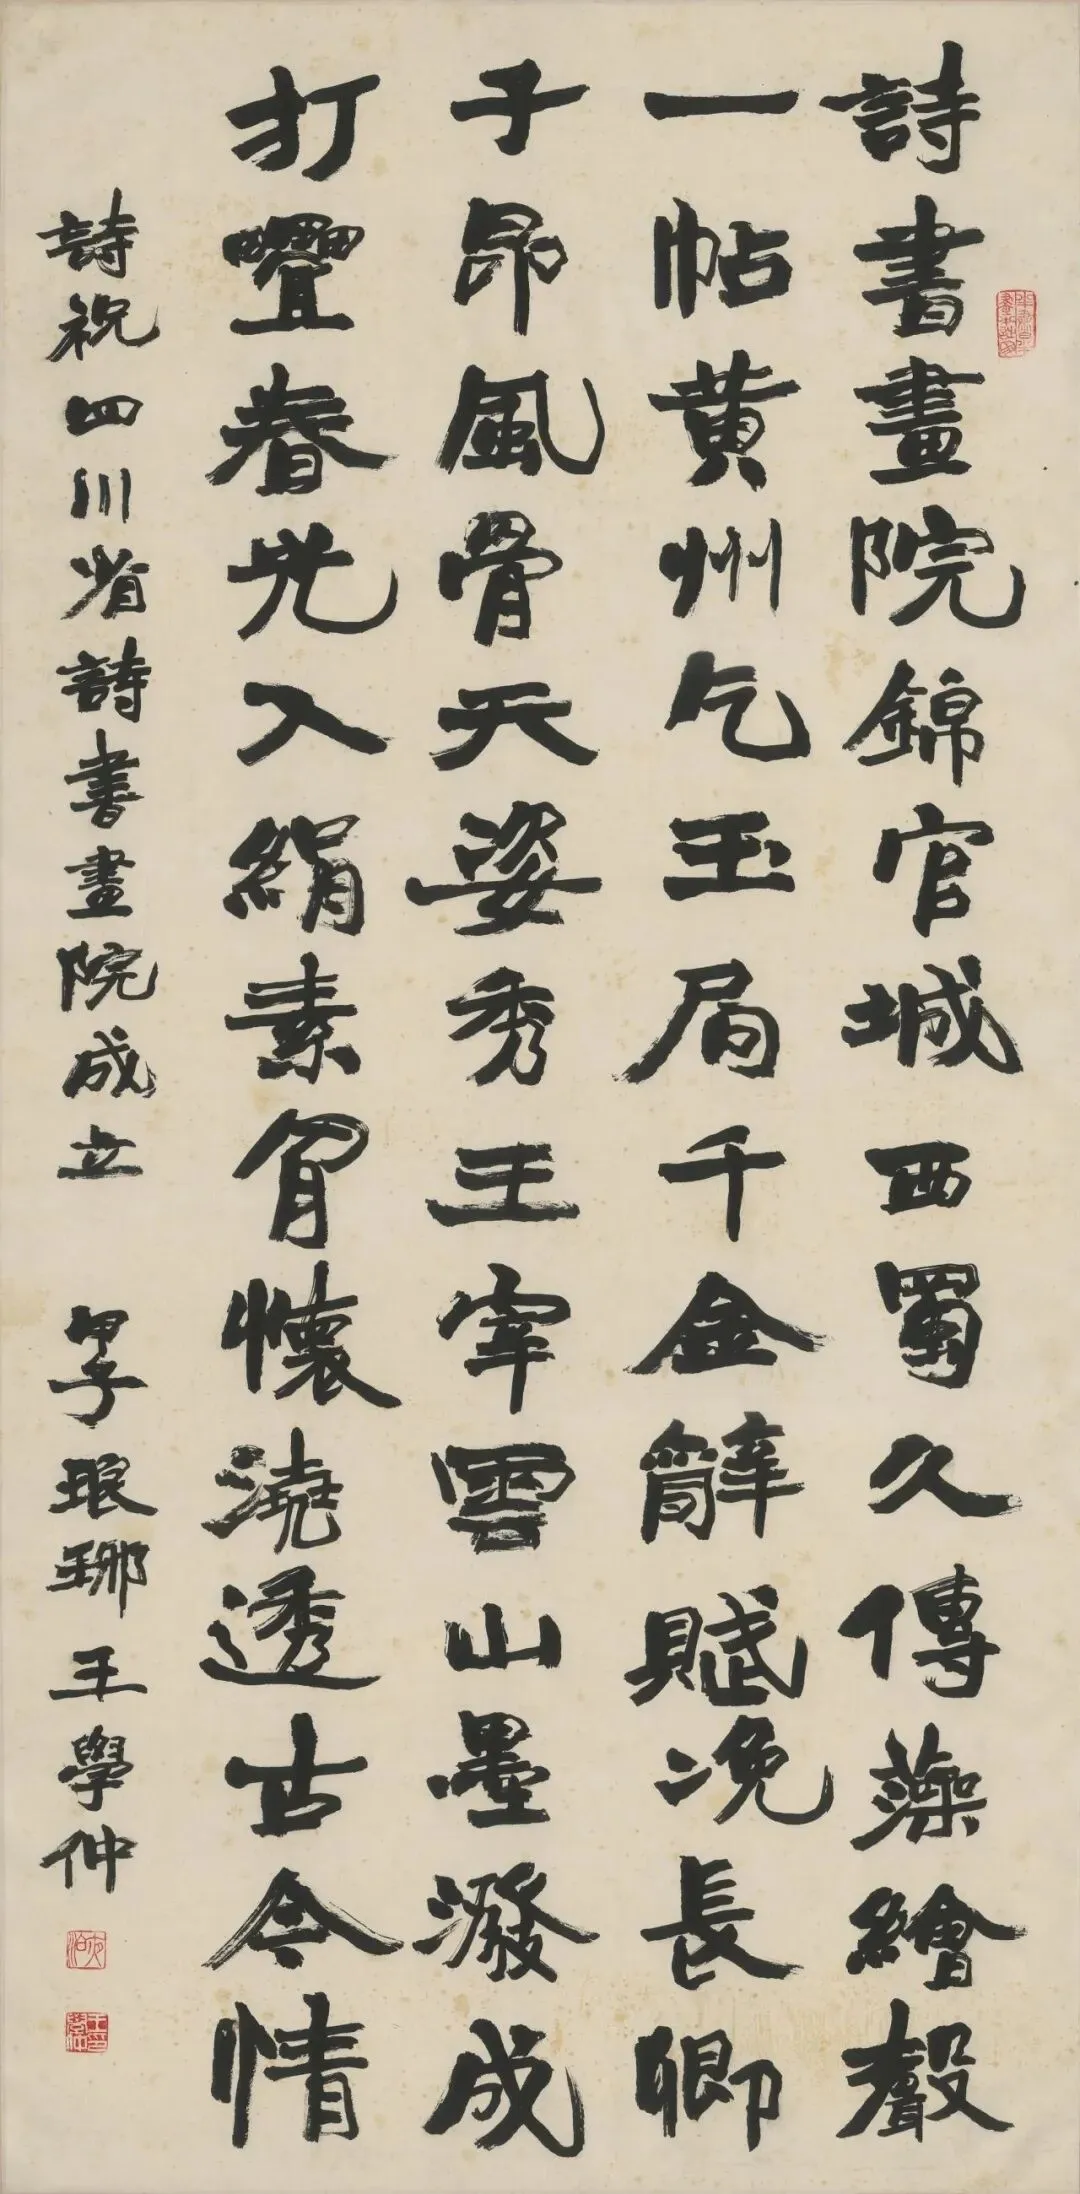 詩書畫院錦官城西蜀久傳藻繪聲
一帖黄州乞玉局千金辭賦浼長卿
子昂風骨天姿秀王宰雲山墨潑成
打疊春光入絹素胷懷澆透古今情
詩祝四川省詩書畫院成立 甲子琅琊王學仲